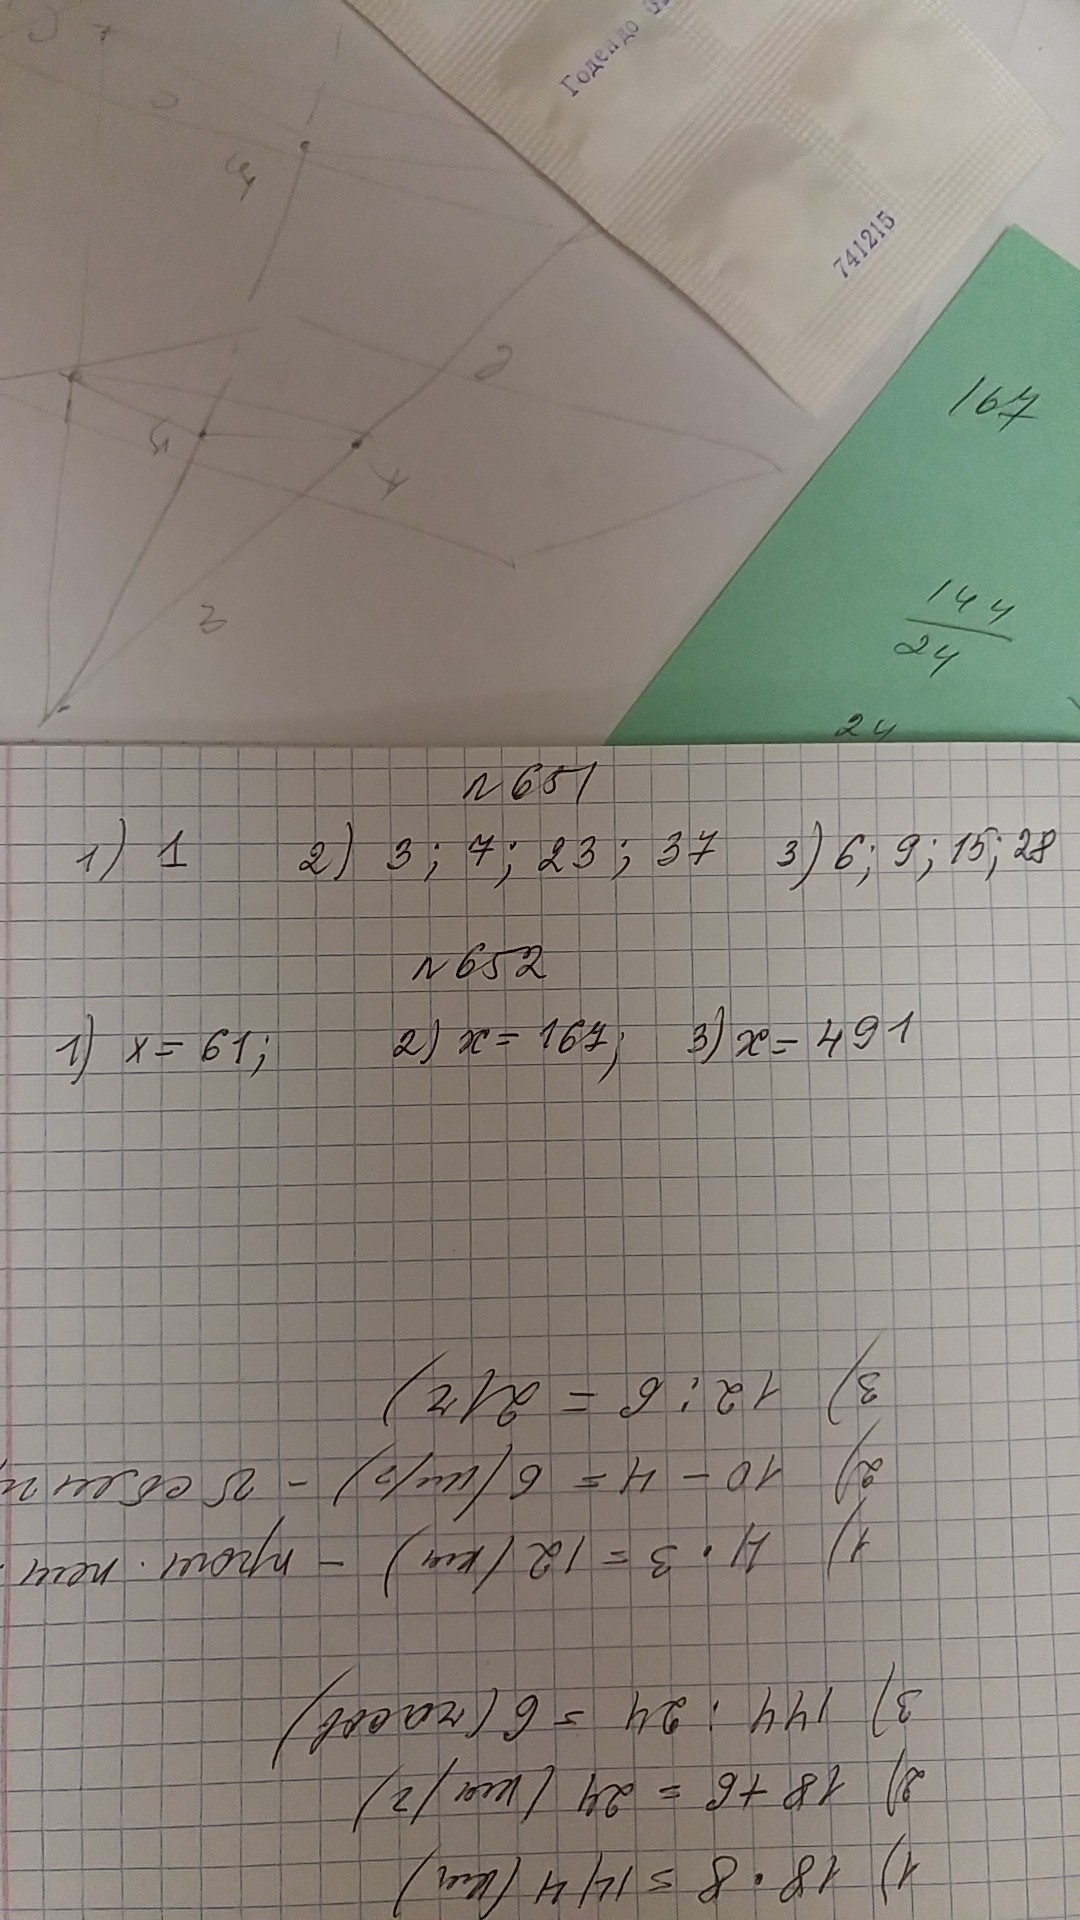 Годен до
741215
167
144
24
24
C
C
B
A
n 651
1) 1 2) 3; 7; 23; 37 3) 6; 9; 15; 28
n 652
1) x = 61; 2) x = 167; 3) x = 491
1) 18 · 8 = 144 (км)
2) 18 + 6 = 24 (км/ч)
3) 144 : 24 = 6 (часов)
1) 4 · 3 = 12 (км) - прош. пеш.
2) 10 - 4 = 6 (км/ч) -
3) 12 : 6 = 2 (ч)